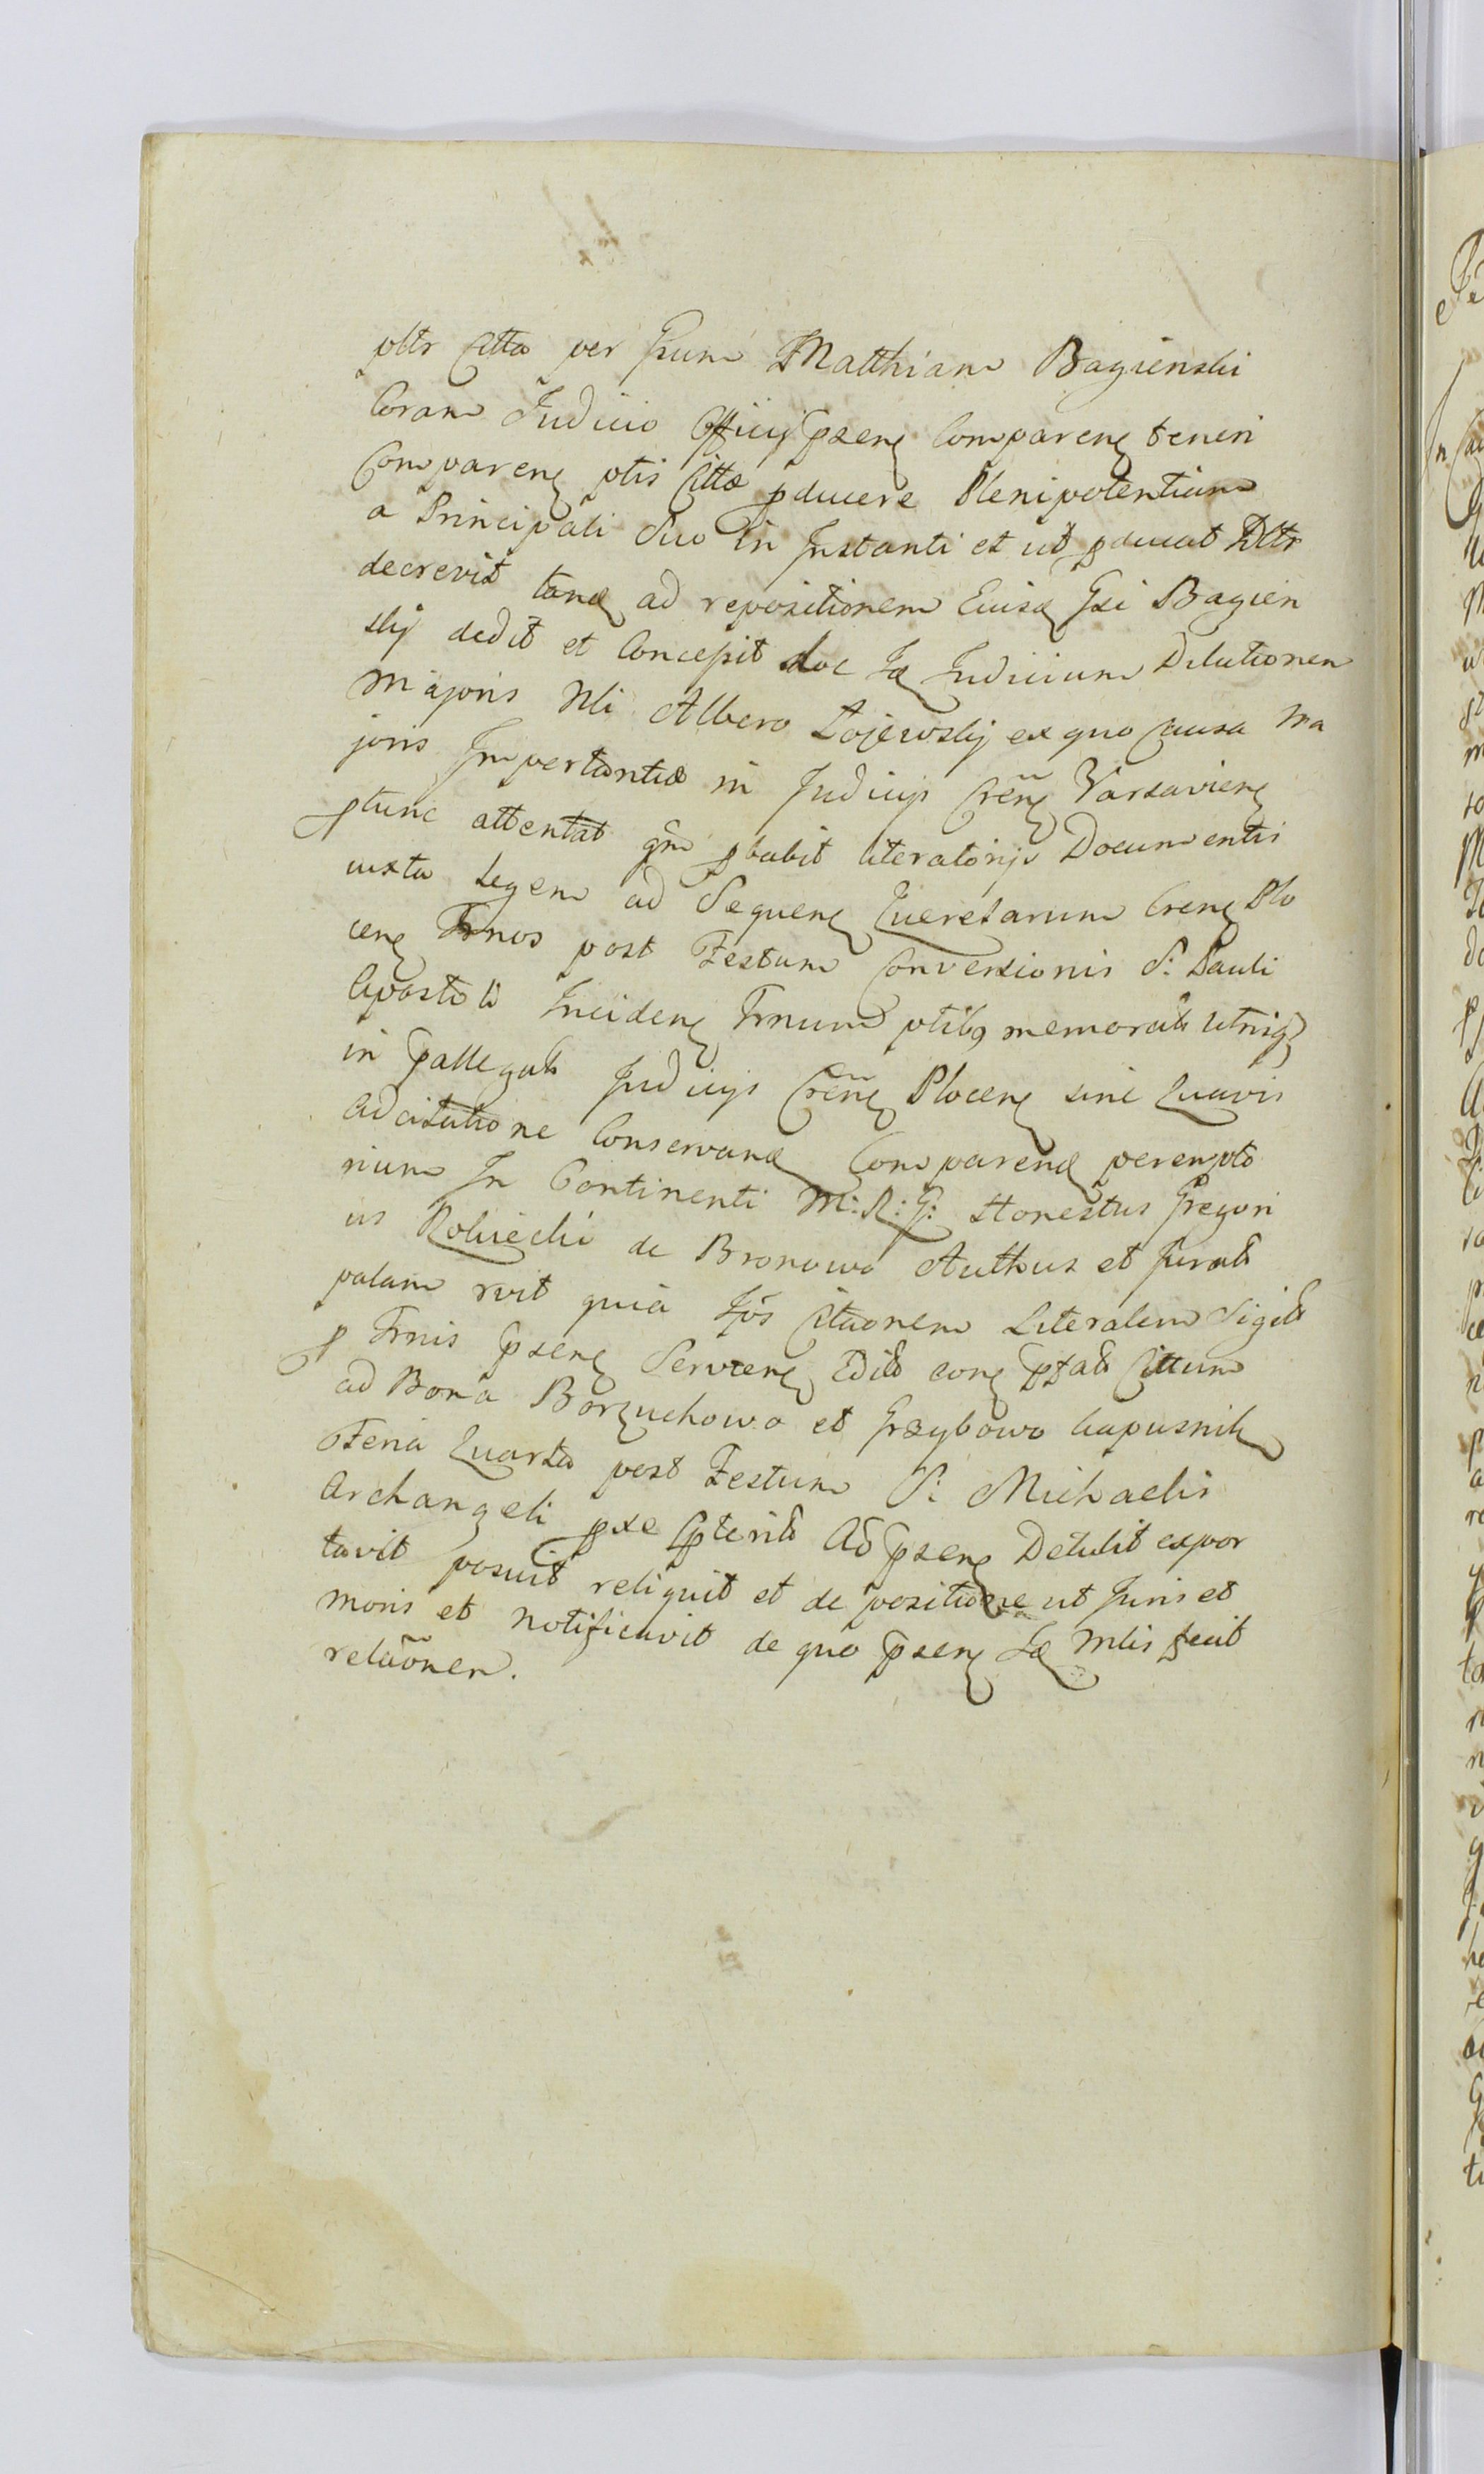 pltr Citta per Gsum Matthiam Bagienski
Coram Judicio Officij psens Comparens teneri
Comparens ptis Citta pducere Plenipotentiam
a Principali suo in Instanti et ut pducat Dltr
decrevit tand ad repositionem Eiusd Gsi Bagien
skij dedit et Concessit hoc Id Judicium Dilationem
majoris Nli Albero Łojewskij ex quo Causa ma
joris Importantiæ in Judicijs Crens Varsaviens
ptunc attentat qm pbabit literatorijs Documentis
iuxta Legem ad Sequens Querelarum Crens Plo
cens Trnos post Festum Conversionis S: Pauli
Apostoli Incidens Trnum ptibq memorats Utriq
in pallegats Judicijs Crens Plocens sine Quavis
Adcitatione Conservand Comparend perempto
rium In Continenti M: R: G: Honestus Gregori
us Roluiecki de Bronowo Authus et Jurats
palam rvit quia Ips Citaonem Literalem Sigill
p Trnis psens Serviens Edits cons pfats Cittum
ad Bona Borzuchowo et Grzybowo Capusnik
Feria Quarta post Festum S: Michaelis
Archangeli pxe pterito Ad psens Detulit expor
tavit posuit reliquit et de positione ut Juris et
moris et notificavit de quo psens Id Mlis fecit
relaonem.